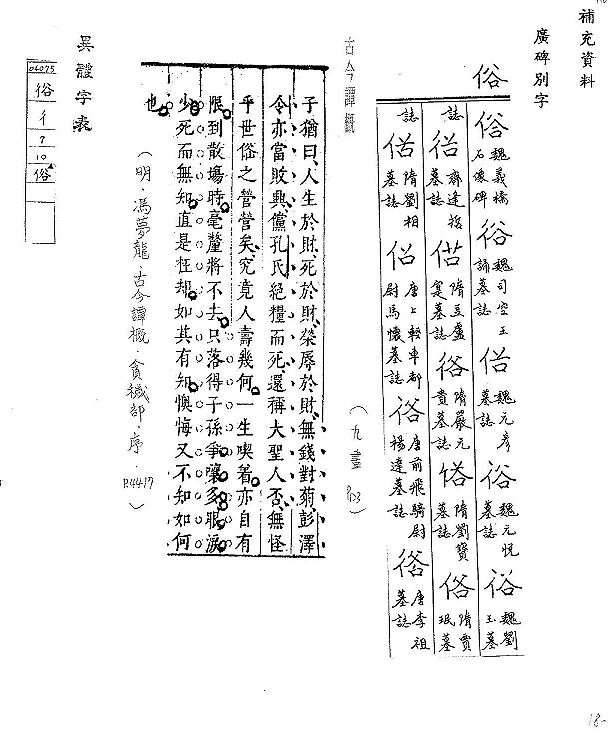 補充資料
廣碑別字
俗
俗 魏義橋石像碑
俗 魏司空王誦墓誌
俗 魏元彥墓誌
俗 魏元悅墓誌
俗 魏劉玉墓
誌
俗 齊逢哲墓誌
俗 隋豆盧寔墓誌
俗 隋嚴元貴墓誌
俗 隋劉寶墓誌
俗 隋賈珉墓
誌
俗 隋劉相墓誌
俗 唐上輕車都尉馬懷墓誌
俗 唐前飛騎尉楊達墓誌
俗 唐李祖墓誌
(九畫 P.83)
古今譚概
子猶曰人生於財死於財榮辱於財無錢對菊彭澤
令亦當敗興儻孔氏絕糧而死還稱大聖人否無怪
乎世俗之營營矣究竟人壽幾何一生喫着亦自有
限到散場時毫釐將不去只落得子孫爭嚷多眼淚
少死而無知直是枉却如其有知懊悔又不知如何
也
(明.馮夢龍.古今譚概.貪穢部.序. P.4417)
異體字表
04075
俗
亻
7
10
俗
18-